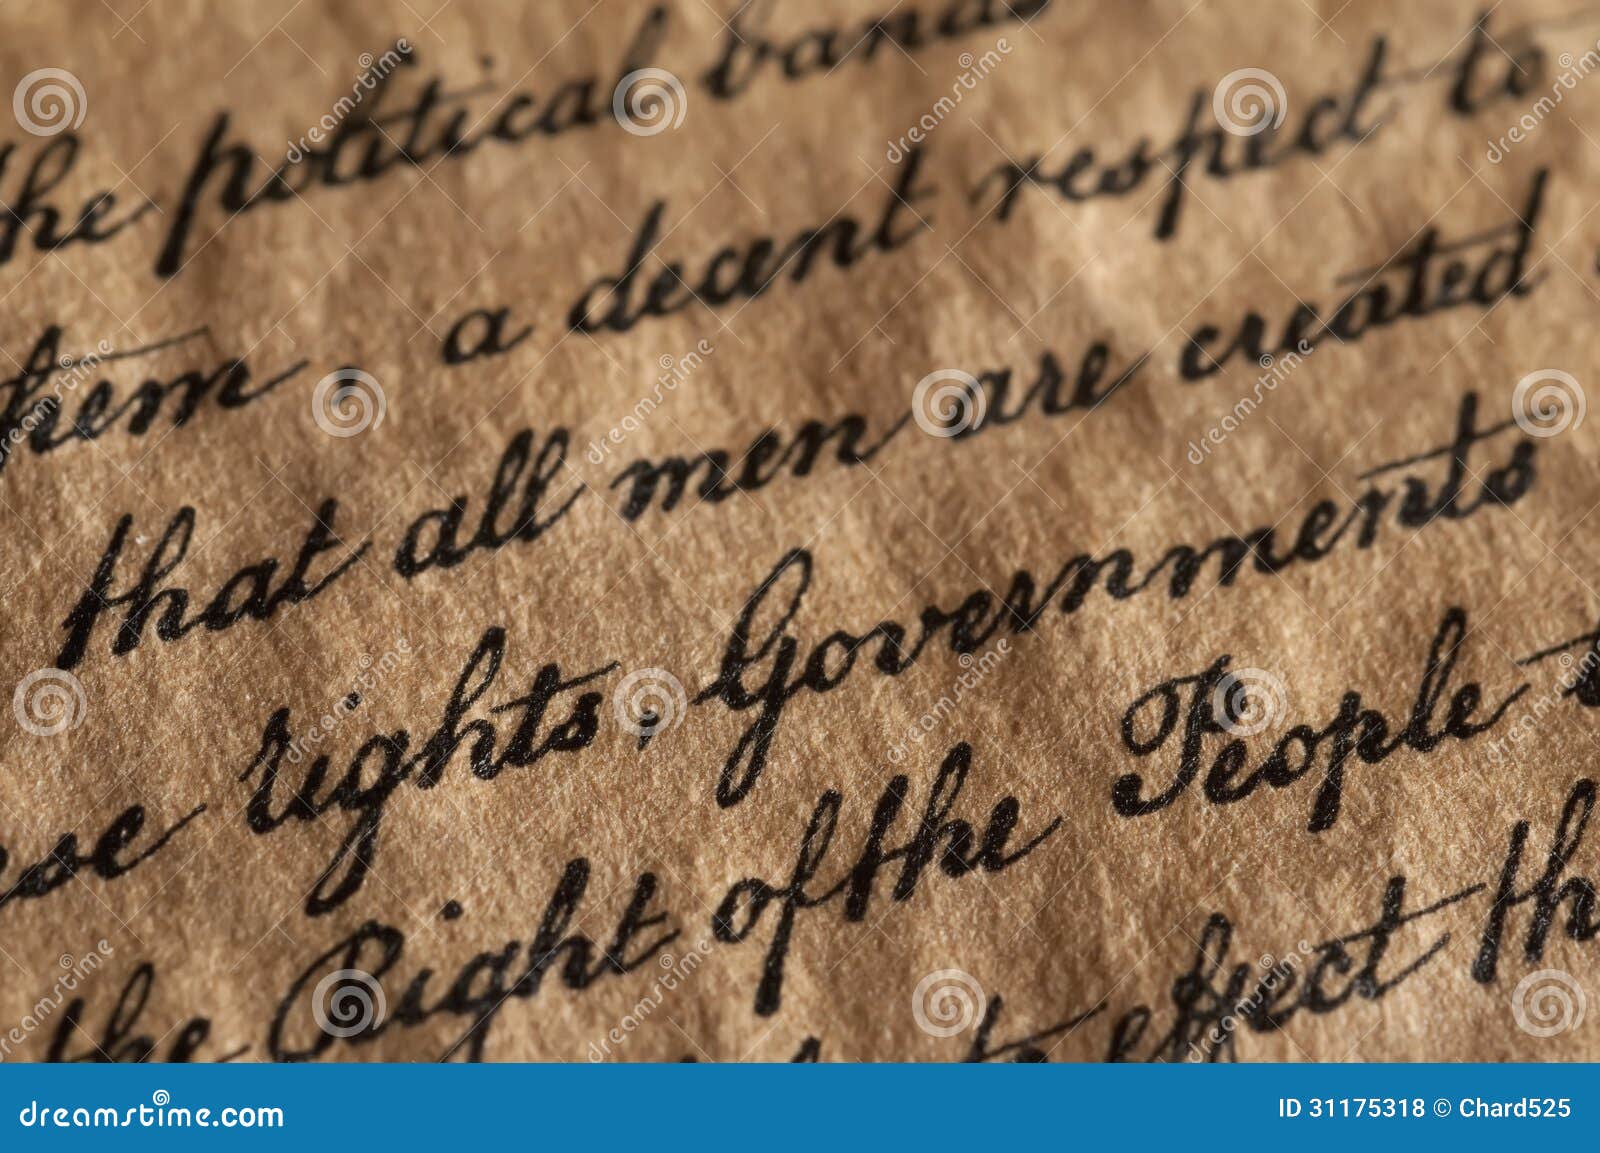 the political bands
them, a decent respect to
that all men are created
rights, Governments
the Right of the People
to effect
dreamstime.com
ID 31175318 © Chard525